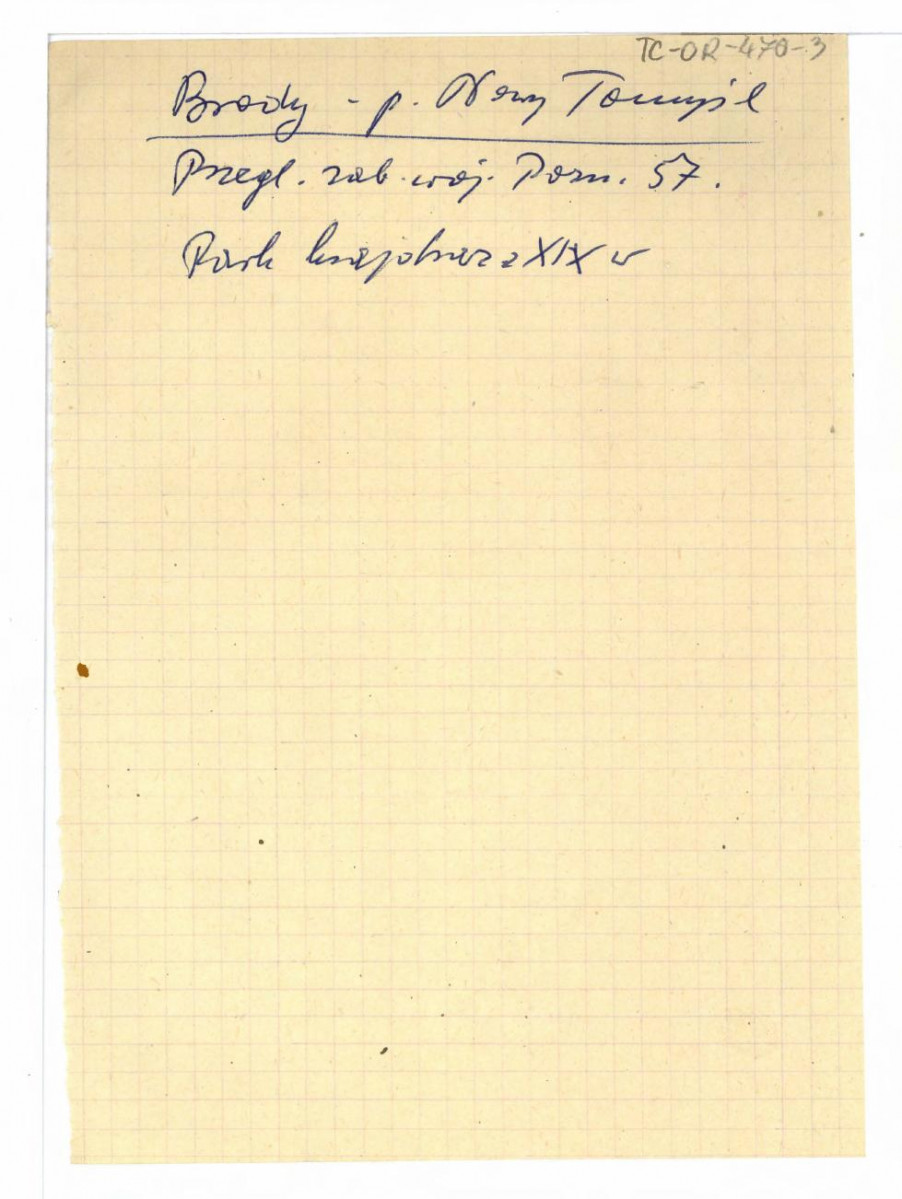 TC-OR-470-3
Brody - p. Nowy Tomyśl
Przegl. zab. woj. Pozn. 57.
Park krajobraz z XIX w